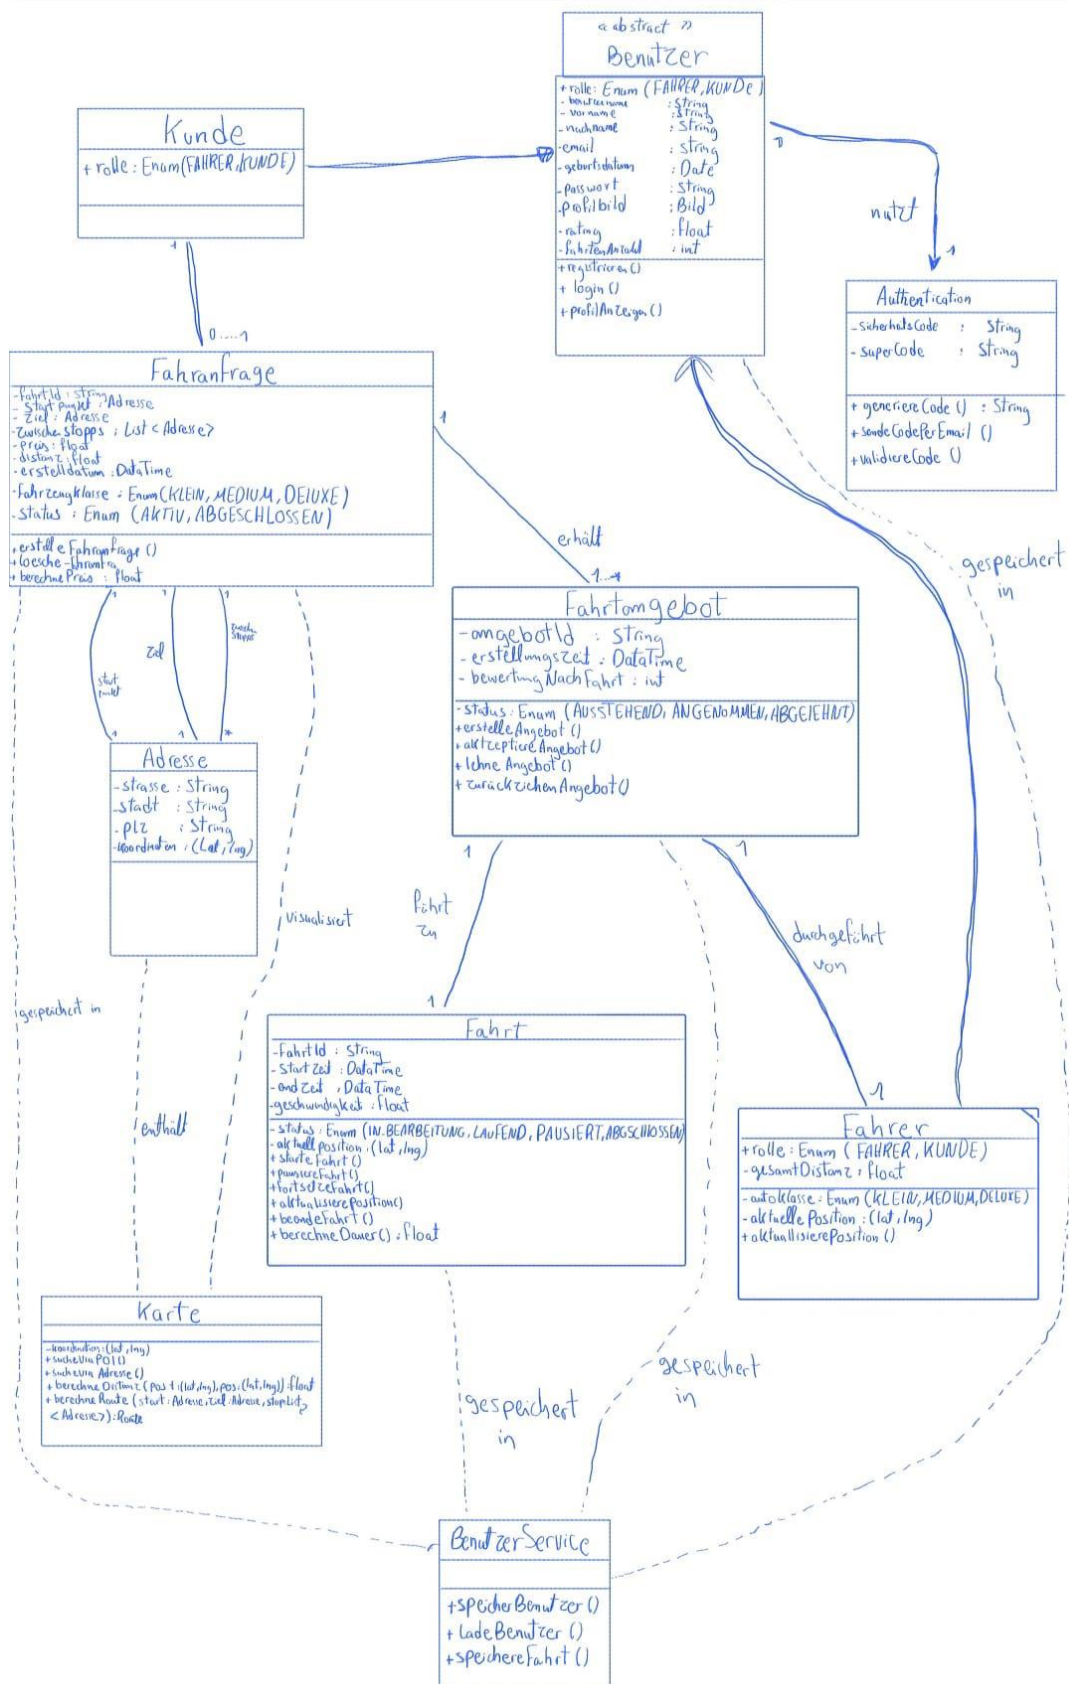 « abstract »
Benutzer
+ rolle: Enum (FAHRER, KUNDE)
- benutzername : String
- vorname : String
- nachname : String
- email : String
- geburtsdatum : Date
- passwort : String
- profilbild : Bild
- rating : float
- fahrtenAnzahl : int
+ registrieren ()
+ login ()
+ profilAnzeigen ()
Kunde
+ rolle: Enum (FAHRER, KUNDE)
1
0....1
nutzt
1
Authentication
- sicherheitsCode : String
- superCode : String
+ generiereCode () : String
+ sendeCodePerEmail ()
+ validiereCode ()
Fahranfrage
- fahrtId : String
- Startpunkt : Adresse
- Ziel : Adresse
- zwischenstopps : List <Adresse>
- preis : float
- distanz : float
- erstelldatum : DataTime
- fahrzeugklasse : Enum (KLEIN, MEDIUM, DElUXE)
- status : Enum (AKTIV, ABGESCHLOSSEN)
+ erstelleFahranfrage ()
+ berechnePreis : float
1
erhält
1..*
gespeichert
in
1
1
1
start
punkt
ziel
1
1
*
Fahrtangebot
- angebotId : String
- erstellungszeit : DataTime
- bewertungNachFahrt : int
- status : Enum (AUSSTEHEND, ANGENOMMEN, ABGElEHNT)
+ erstelleAngebot ()
+ aktzeptiereAngebot ()
+ lehneAngebot ()
+ zurückziehenAngebot ()
Adresse
- strasse : String
- stadt : String
- plz : String
- koordinaten : (Lat, lng)
1
1
führt
zu
1
durchgeführt
von
1
visualisiert
gespeichert in
enthält
Fahrt
- FahrtId : String
- startzeit : DataTime
- endzeit : DataTime
- geschwindigkeit : float
- status : Enum (IN.BEARBEITUNG, LAUFEND, PAUSIERT, ABGSCHlOSSEN)
- aktuellposition : (lat, lng)
+ starteFahrt ()
+ pausiereFahrt ()
+ fortsetzeFahrt ()
+ aktualisierePosition ()
+ beendeFahrt ()
+ berechneDauer () : float
Fahrer
+ rolle : Enum (FAHRER, KUNDE)
- gesamtDistanz : float
- autoklasse : Enum (KLEIN, MEDIUM, DELUXE)
- aktuellePosition : (lat, lng)
+ aktuallisierePosition ()
Karte
- koordinaten : (lat, lng)
+ sucheVia POI ()
+ sucheVia Adresse ()
+ berechneDistanz (pos1 : (lat, lng), pos : (lat, lng)) : float
+ berechneRoute (start : Adresse, ziel : Adresse, stop List
<Adresse>) : Route
gespeichert
in
gespeichert
in
BenutzerService
+ speicherBenutzer ()
+ LadeBenutzer ()
+ speichereFahrt ()